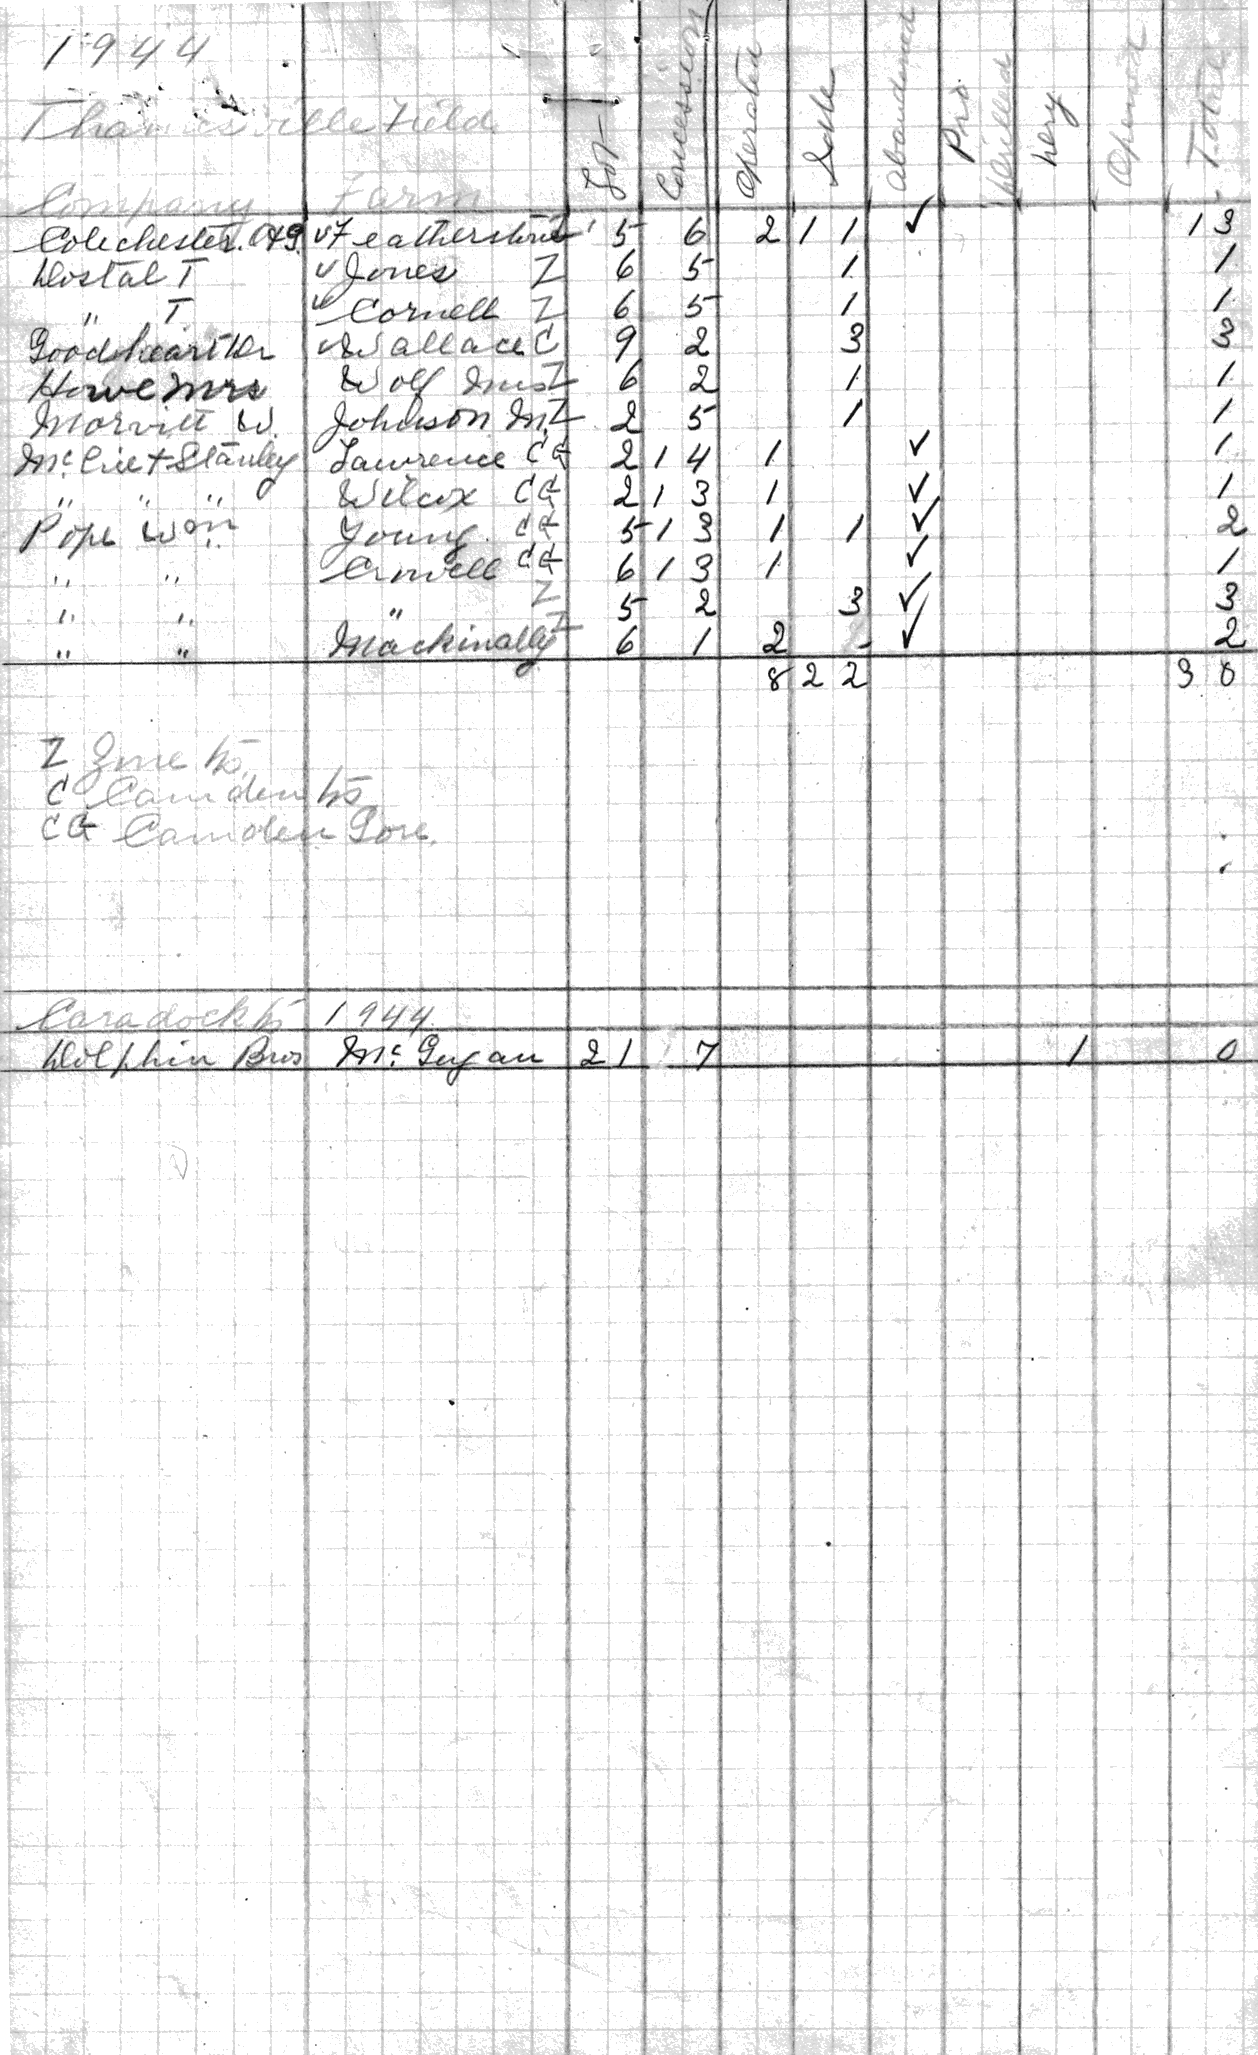 1944
Thamesville Field
Company Farm Lot Concession Operated Idle abandoned Pro Drilled Dry Opened Total
Colechester O&G Featherstone Z 5 6 2 11 ✓ 13
Dostal T Jones Z 6 5 1 1
" T Cornell Z 6 5 1 1
Goodheart Dr Wallace C 9 2 3 3
Howe Mrs Wolf Mrs Z 6 2 1 1
Morvitt W. Johnson M. Z 2 5 1 1
Stanley Lawrence CG 2 14 1 ✓ 1
" " " Wilcox CG 2 13 1 ✓ 1
Pope Wm Young CG 5 13 1 1 ✓ 2
" " Crowell CG 6 13 1 ✓ 1
" " " Z 5 2 3 ✓ 3
" " Mackinally Z 6 1 2 - ✓ 2
8 22 30
Z Zone Ts.
C Camden Ts
CG Camden Gore.
Caradock Ts 1944
Dolphin Bros McGugan 21 7 1 0